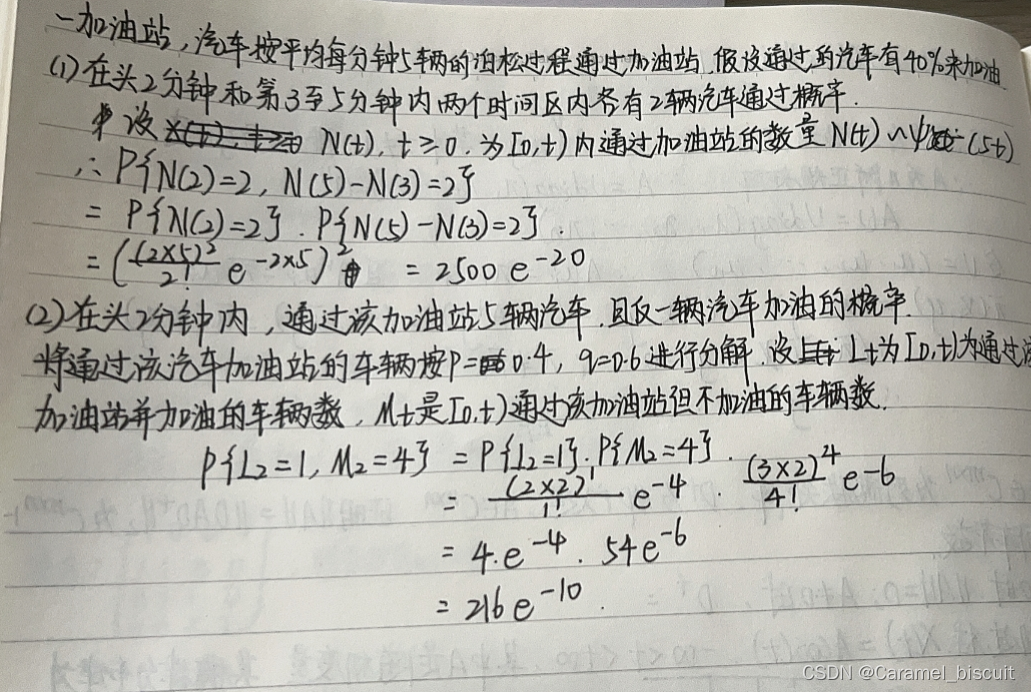 一加油站，汽车按平均每分钟5辆的泊松过程通过加油站，假设通过的汽车有40%来加油
(1)在头2分钟和第3至5分钟内两个时间区内各有2辆汽车通过概率.
设 N(t), t≥0, 为[0,t)内通过加油站的数量N(t)~ (5t)
∴ P{N(2)=2, N(5)-N(3)=2}
= P{N(2)=2}. P{N(5)-N(3)=2}.
= ((2×5)²/2! e^{-2×5})² = 2500 e^{-20}
(2)在头2分钟内，通过该加油站5辆汽车，且仅一辆汽车加油的概率.
将通过该汽车加油站的车辆按P=0.4，q=0.6进行分解，设 Lt为[0,t)为通过该
加油站并加油的车辆数，Mt是[0,t)通过该加油站但不加油的车辆数.
P{L₂=1, M₂=4} = P{L₂=1}.P{M₂=4}.
= (2×2)^1/1! e^{-4} . (3×2)^4/4! e^{-6}
= 4.e^{-4} . 54e^{-6}
= 216e^{-10}.
CSDN @Caramel_biscuit